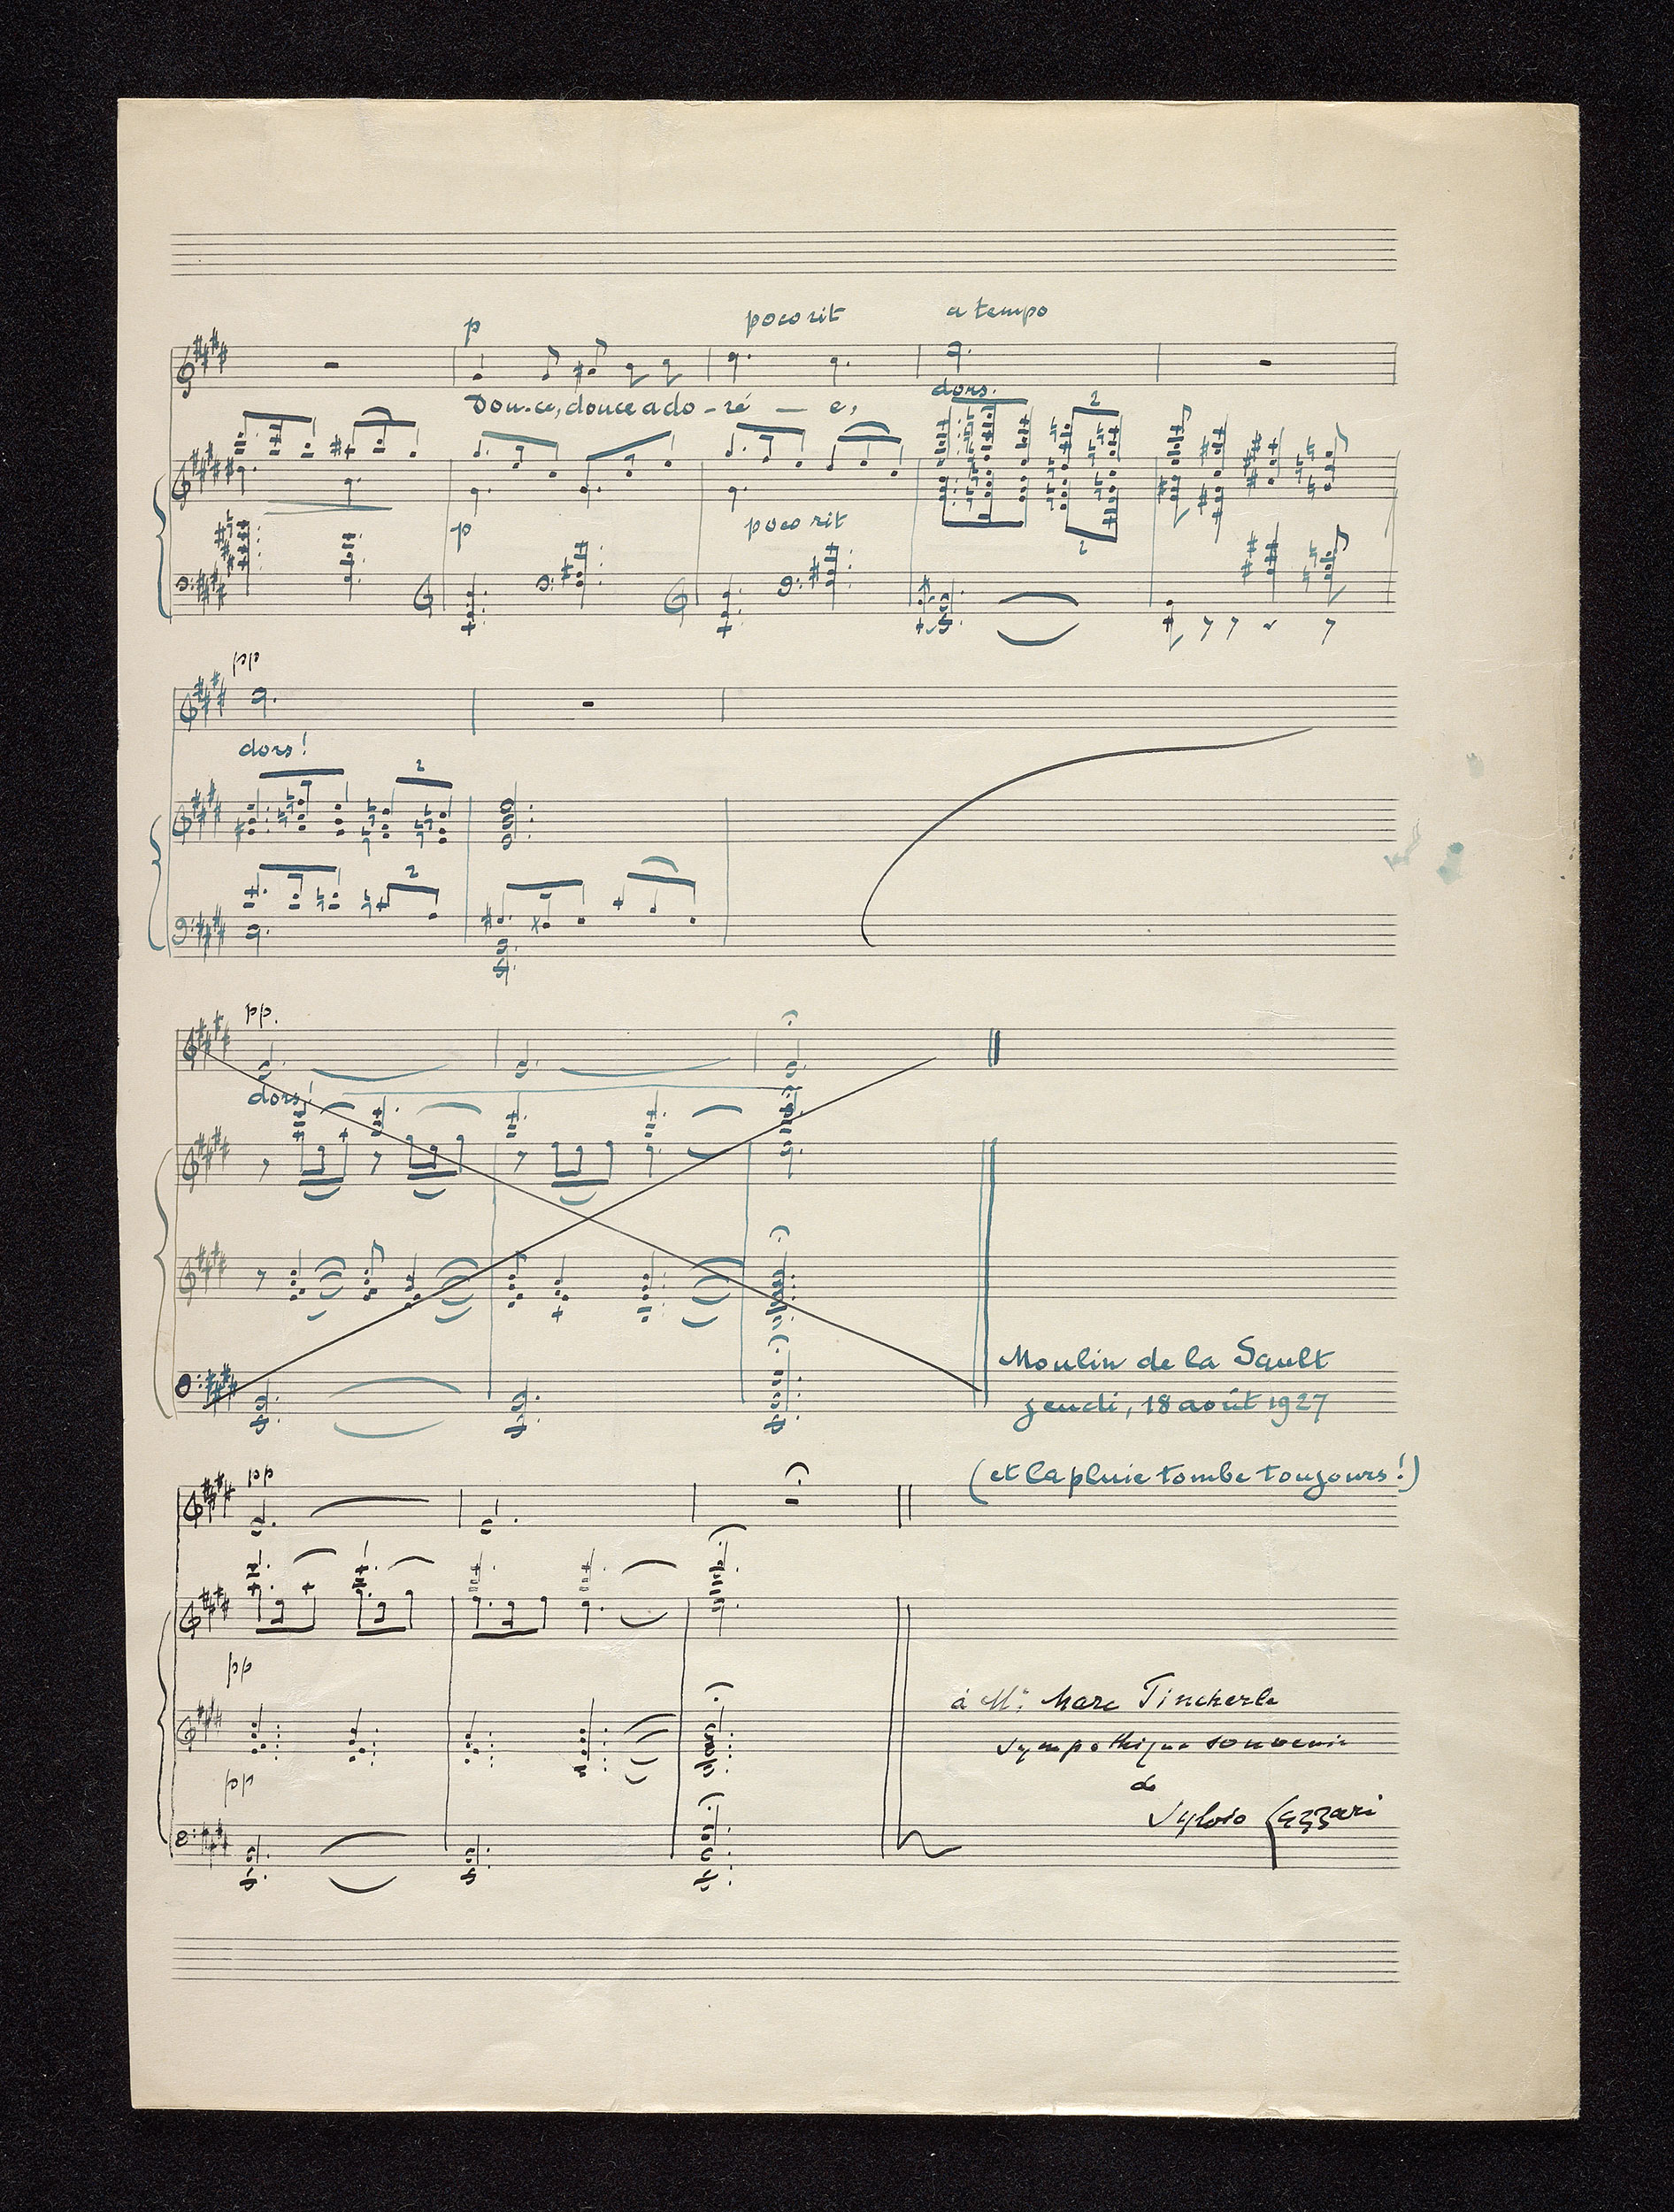 p
poco rit
a tempo
Dou-ce, douce ado-ré — e,
dors.
2
p
poco rit
2
pp
dors!
2
2
pp.
dors!
Moulin de la Sault
jeudi, 18 août 1927
(et la pluie tombe toujours!)
pp
pp
à Mr. Marc Pincherle
sympathique souvenir
pp
de
Sylvio Lazzari